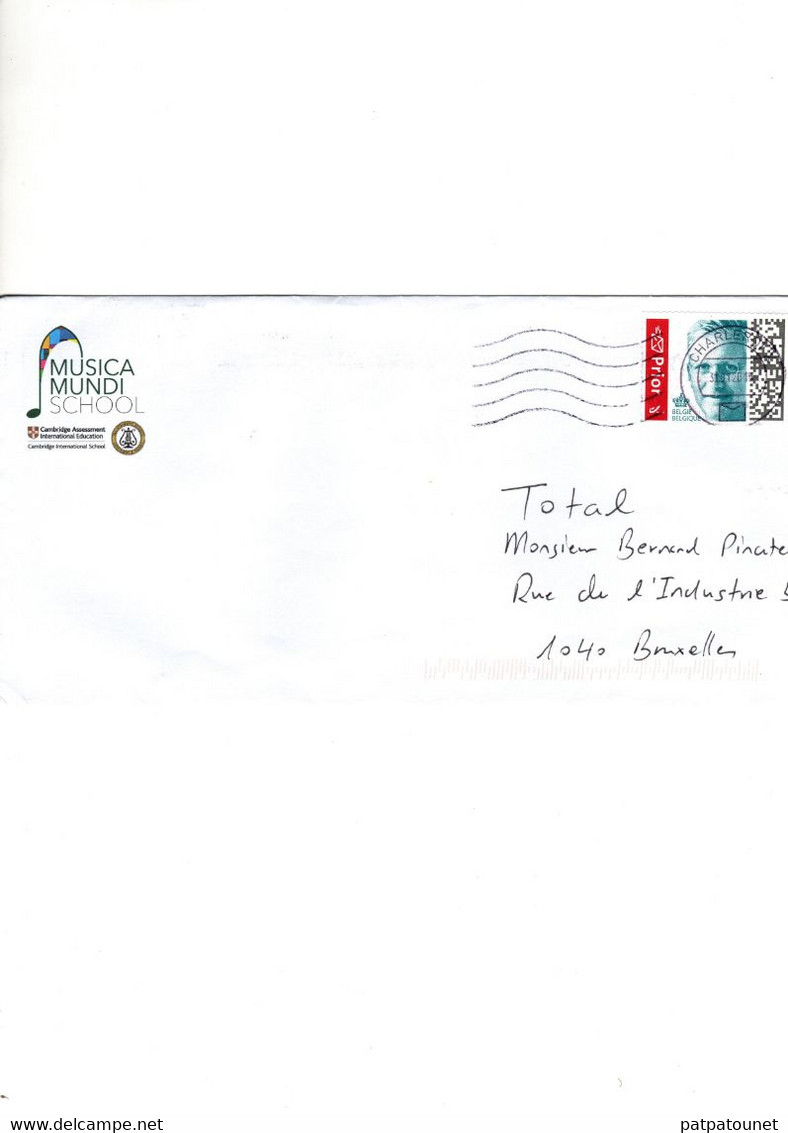 MUSICA
MUNDI
SCHOOL
Cambridge Assessment
International Education
Cambridge International School
Prior
BELGIË
BELGIQUE
Total
Monsieur Bernard
Rue de l'Industrie
1040 Bruxelles
www.delcampe.net
patpatounet